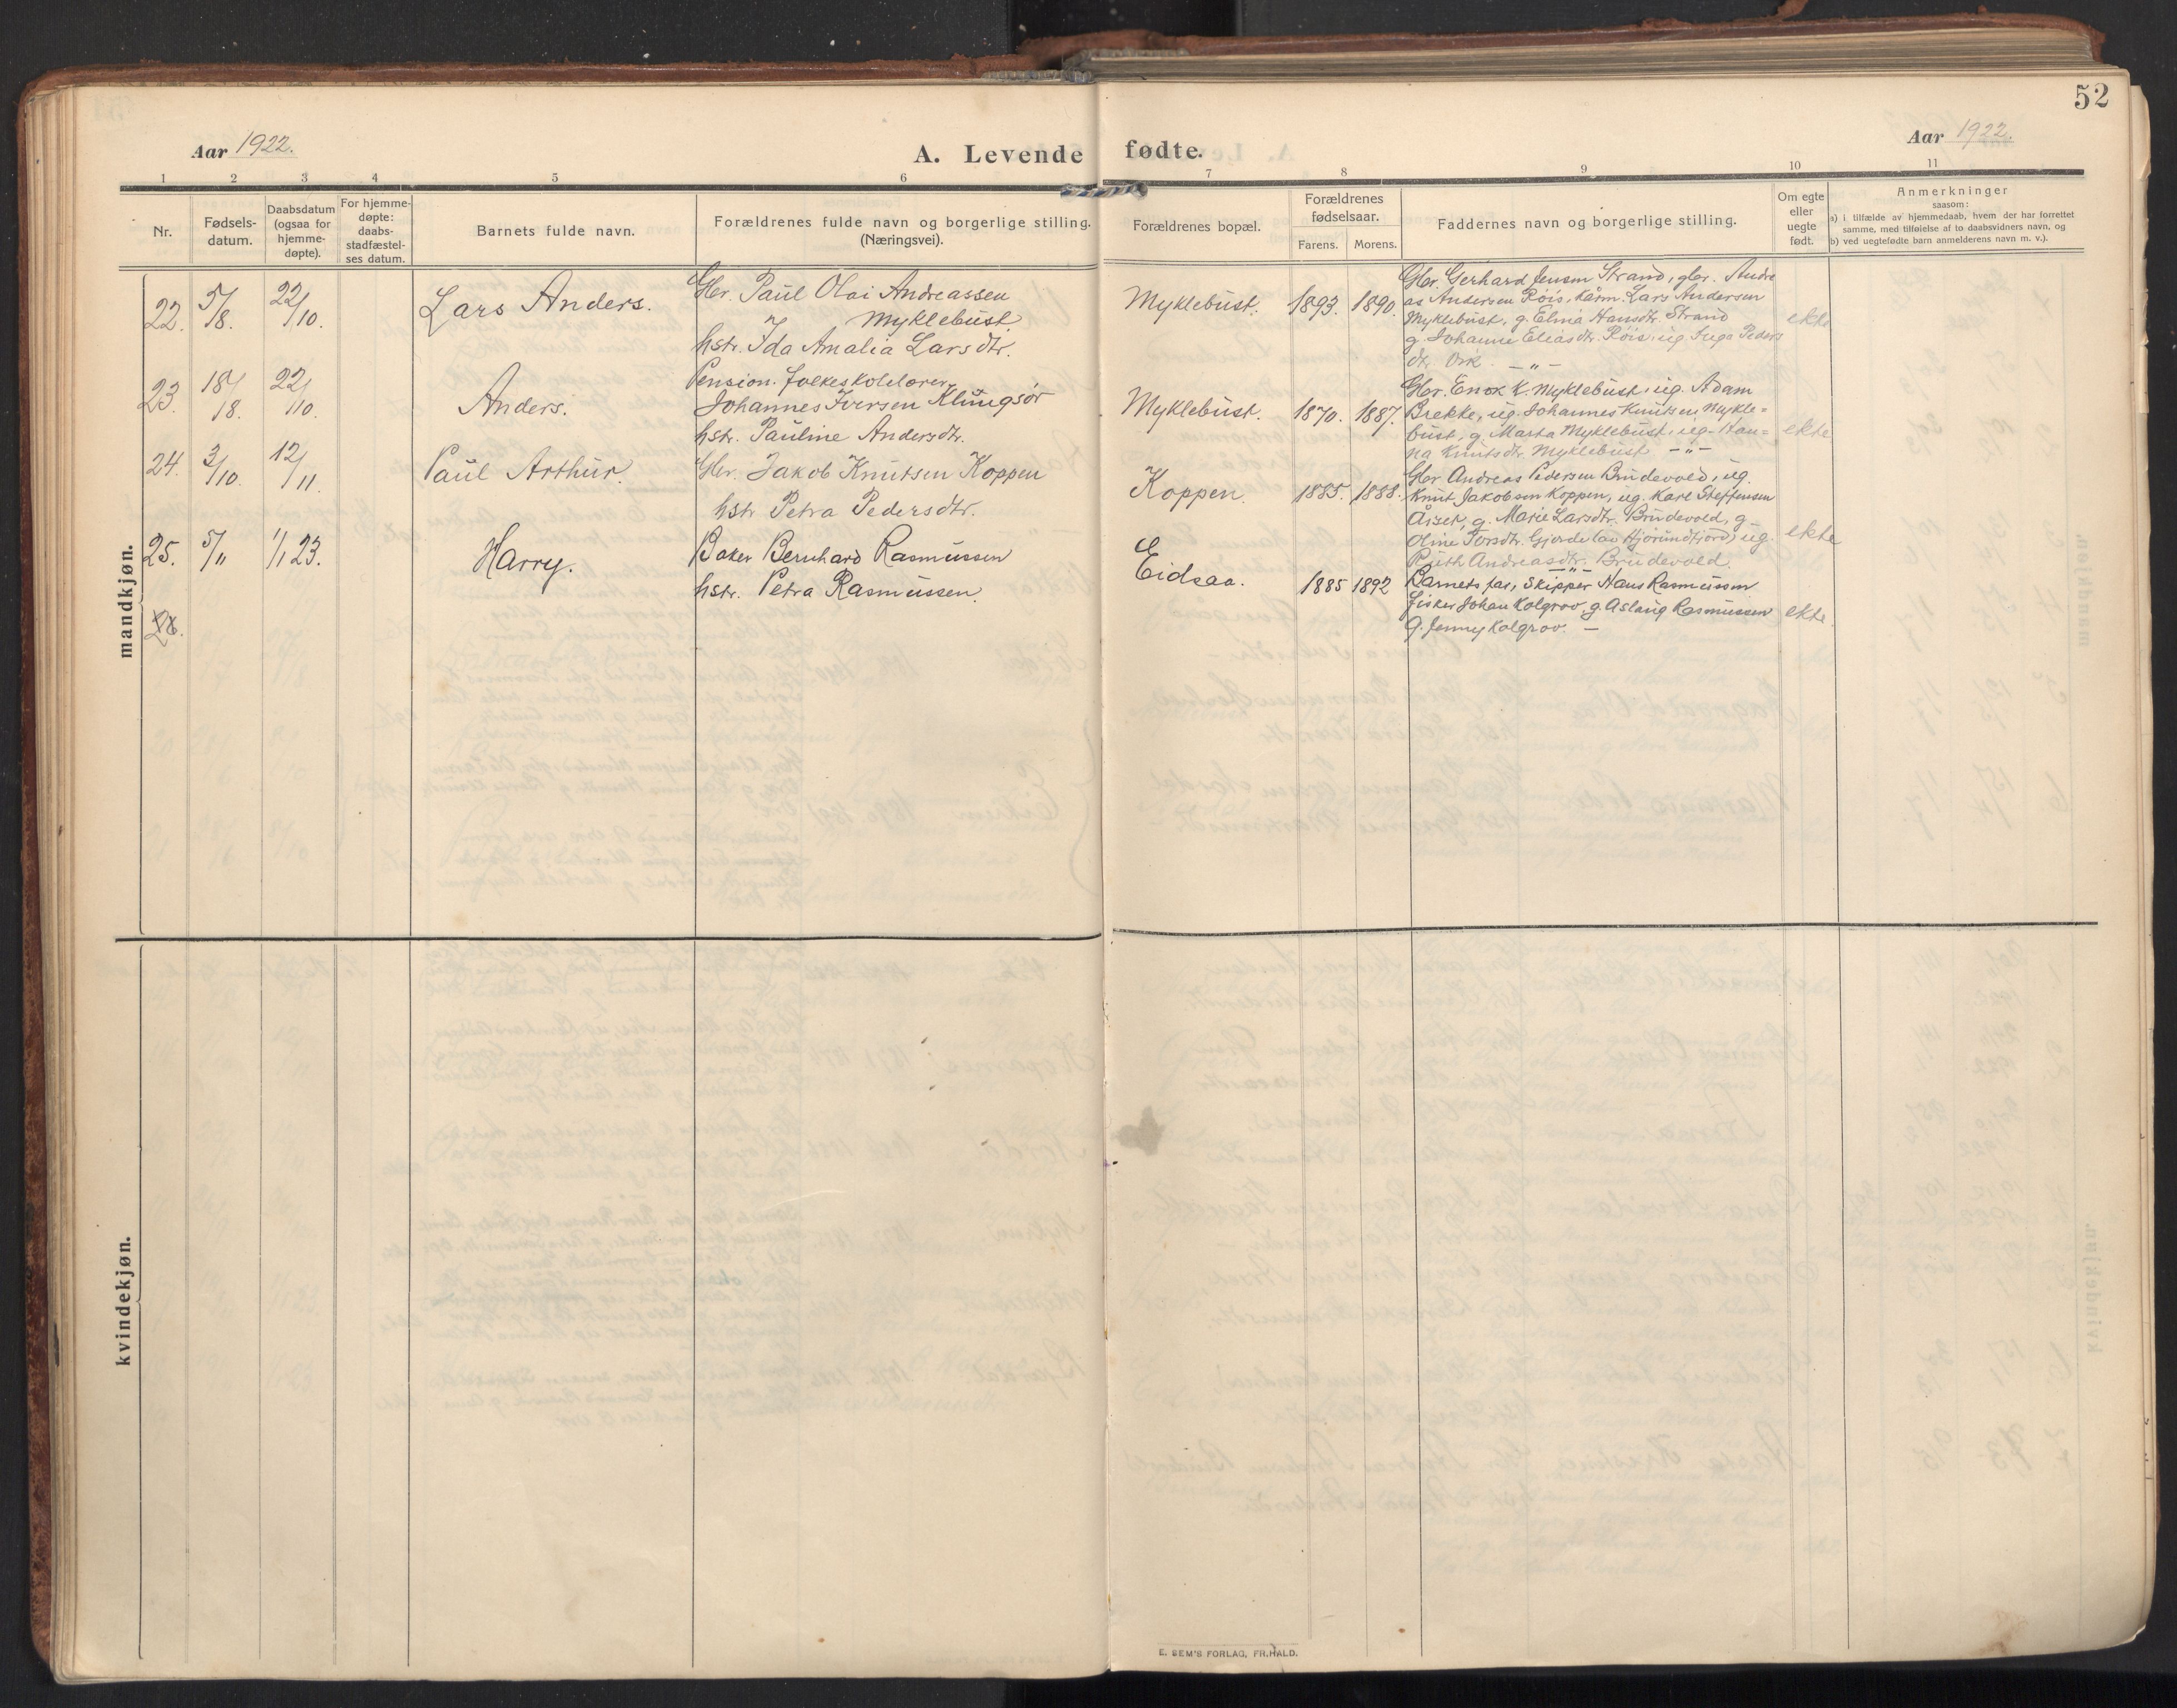 52
Aar 1922.
A. Levende fødte.
Aar 1922.
1 2 3 4 5 6 7 8 9 10 11
Nr.
Fødsels-
datum.
Daabsdatum
(ogsaa for
hjemme-
døpte).
For hjemme-
døpte:
daabs-
stadfæstel-
ses datum.
Barnets fulde navn.
Forældrenes fulde navn og borgerlige stilling.
(Næringsvei).
Forældrenes bopæl.
Forældrenes
fødselsaar.
Farens. Morens.
Faddernes navn og borgerlige stilling.
Om egte
eller
uegte
født.
Anmerkninger
saasom:
a) i tilfælde av hjemmedaab, hvem der har forrettet
samme, med tilføielse af to daabsvidners navn, og
b) ved uegtefødte barn anmelderens navn m. v.).
mandkjøn.
22. 5/8. 22/10. Lars Anders.
Gbr. Paul Olai Andreassen
Myklebust.
hstr. Ida Amalia Larsdtr.
Myklebust. 1893. 1890.
Gbr. Gerhard Jensen Strand, gbr. Andre
as Andersen Röis, kårm. Lars Andersen
Myklebust, g. Elma Hansdtr. Strand
g. Johanne Eliasdtr. Röis, ug. Inga Peders
dtr. Ork. — „ —
ekte
23. 18/8. 22/10. Anders.
Pension. folkeskolelærer
Johannes Iversen Klungsør
hstr. Pauline Andersdtr.
Myklebust. 1870. 1887.
Gbr. Enok K. Myklebust, ug. Adam
Brekke, ug. Johannes Knutsen Mykle=
bust, g. Marta Myklebust, ug. Han=
na Knutsdtr. Myklebust — „ —
ekte
24. 3/10. 12/11. Paul Arthur.
Gbr. Jakob Knutsen Koppen
hstr Petra Pedersdtr.
Koppen. 1885. 1888.
Gbr Andreas Pedersen Brudevold, ug.
Knut Jakobsen Koppen, ug. Karl Steffensen
Årset, g. Marie Larsdtr. Brudevold, g.
Oline Iversdtr. Gjerde (av Hjörundfjord), ug.
Ruth Andreasdtr. Brudevold.
— „ —
ekte
25. 5/11 1/1 23. Harry.
Baker Bernhard Rasmussen
hstr. Petra Rasmussen.
Eidsaa. 1885 1892
Barnets far, Skipper Hans Rasmussen
fisker Johan Kolgrov, g. Aslaug Rasmussen
g. Jenny Kolgrov. —
ekte.
26.
kvindekjøn.
E. SEM'S FORLAG, FR.HALD.